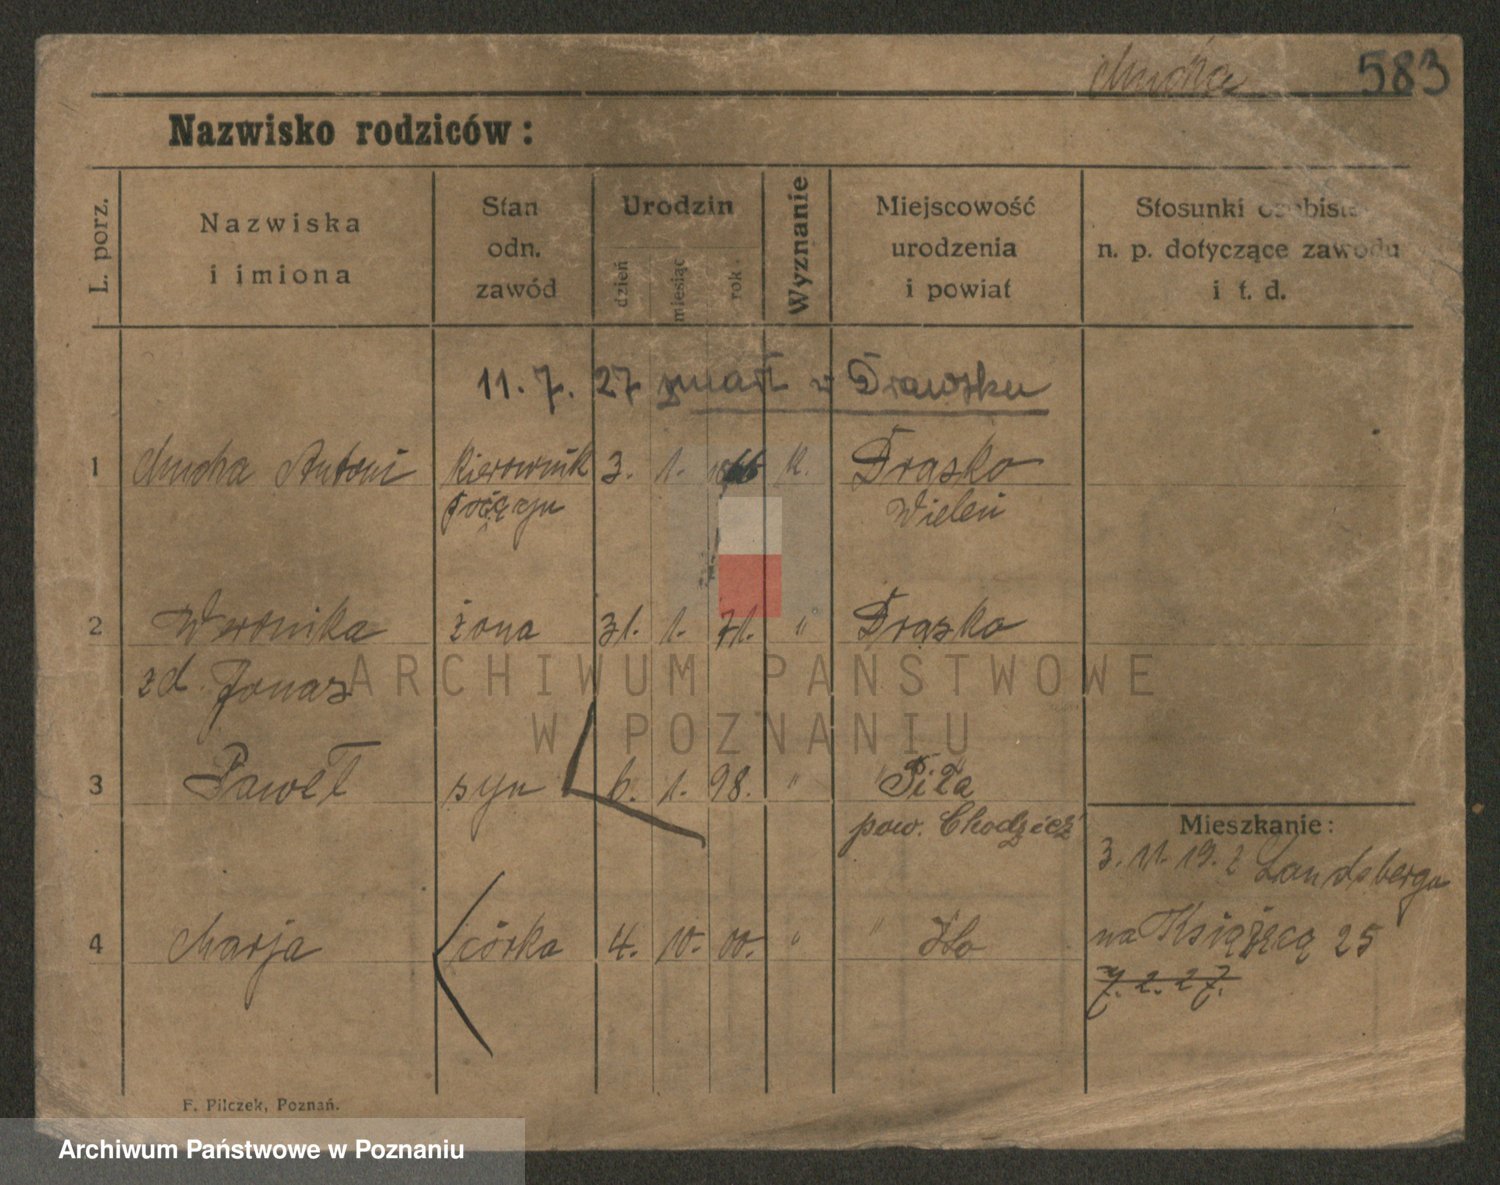 Mucha 583
Nazwisko rodziców:
L. porz.
Nazwiska
i imiona
Stan
odn.
zawód
Urodzin
dzień
miesiąc
rok.
Wyznanie
Miejscowość
urodzenia
i powiat
Stosunki osobiste
n. p. dotyczące zawodu
i t. d.
11. 7. 27 zmarł w Drawsku
1 Mucha Antoni kierownik 3. 1. 1866 k. Drasko
Wieleń
2 Weronika żona 31. 1. 71. " Drasko
zd. Jonas
3 Paweł syn 6. 1. 98. " " Piła
pow. Chodzież
Mieszkanie:
3. 11. 19. z Landsberga
4 Marja córka 4. 10. 00. " "
na Książęcą 25
7. 2. 27.
F. Pilczek, Poznań.
ARCHIWUM PAŃSTWOWE
W POZNANIU
Archiwum Państwowe w Poznaniu